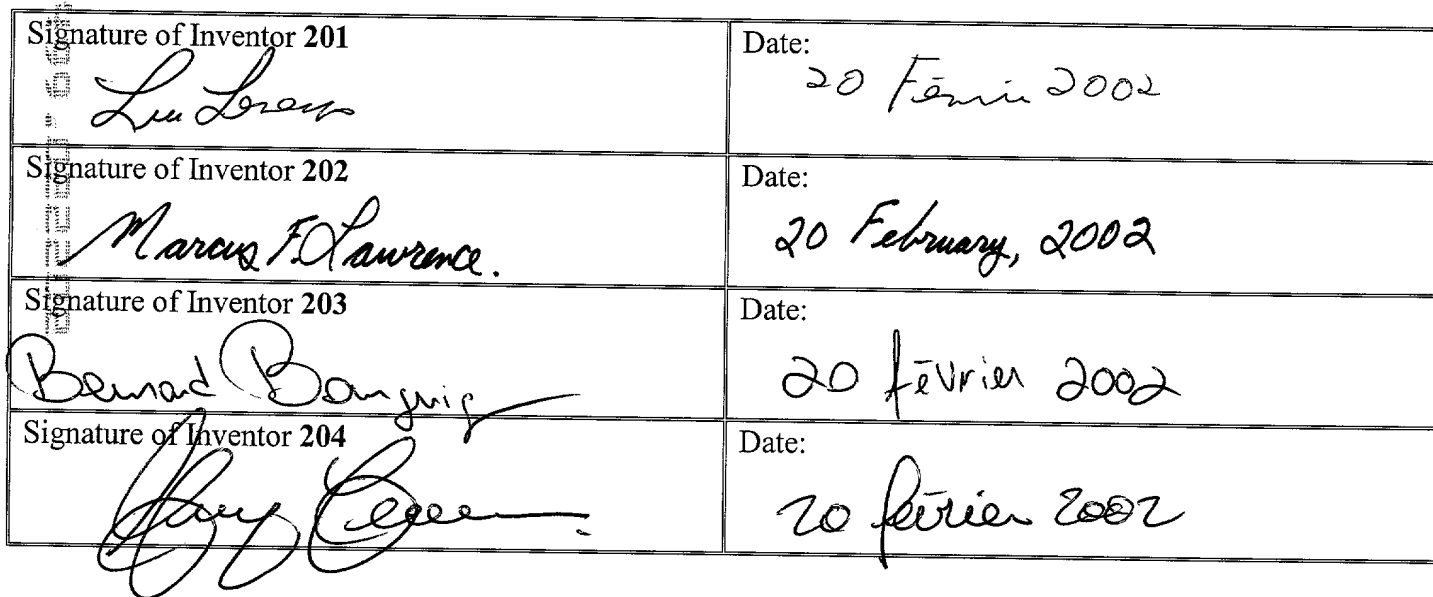 Signature of Inventor 201
Date:
20 Février 2002
Signature of Inventor 202
Date:
Marcus F. Lawrence.
20 February, 2002
Signature of Inventor 203
Date:
Bernard
20 février 2002
Signature of Inventor 204
Date:
20 février 2002